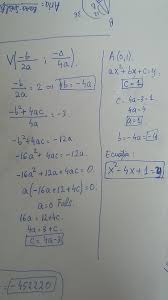 V(-b/2a ; -Δ/4a)
-b/2a = 2 ⇒ b = -4a
-b²+4ac/4a = -3
-b²+4ac = -12a
-16a²+4ac = -12a
-16a²+12a+4ac = 0
a(-16a+12+4c) = 0
a = 0 Fals
16a = 12+4c
4a = 3+c
c = 4a-3
A(0,1)
ax²+bx+c = y
c = 1
4a-3 = 1
4a = 4
a = 1
b = -4a = -4
x²-4x+1 =